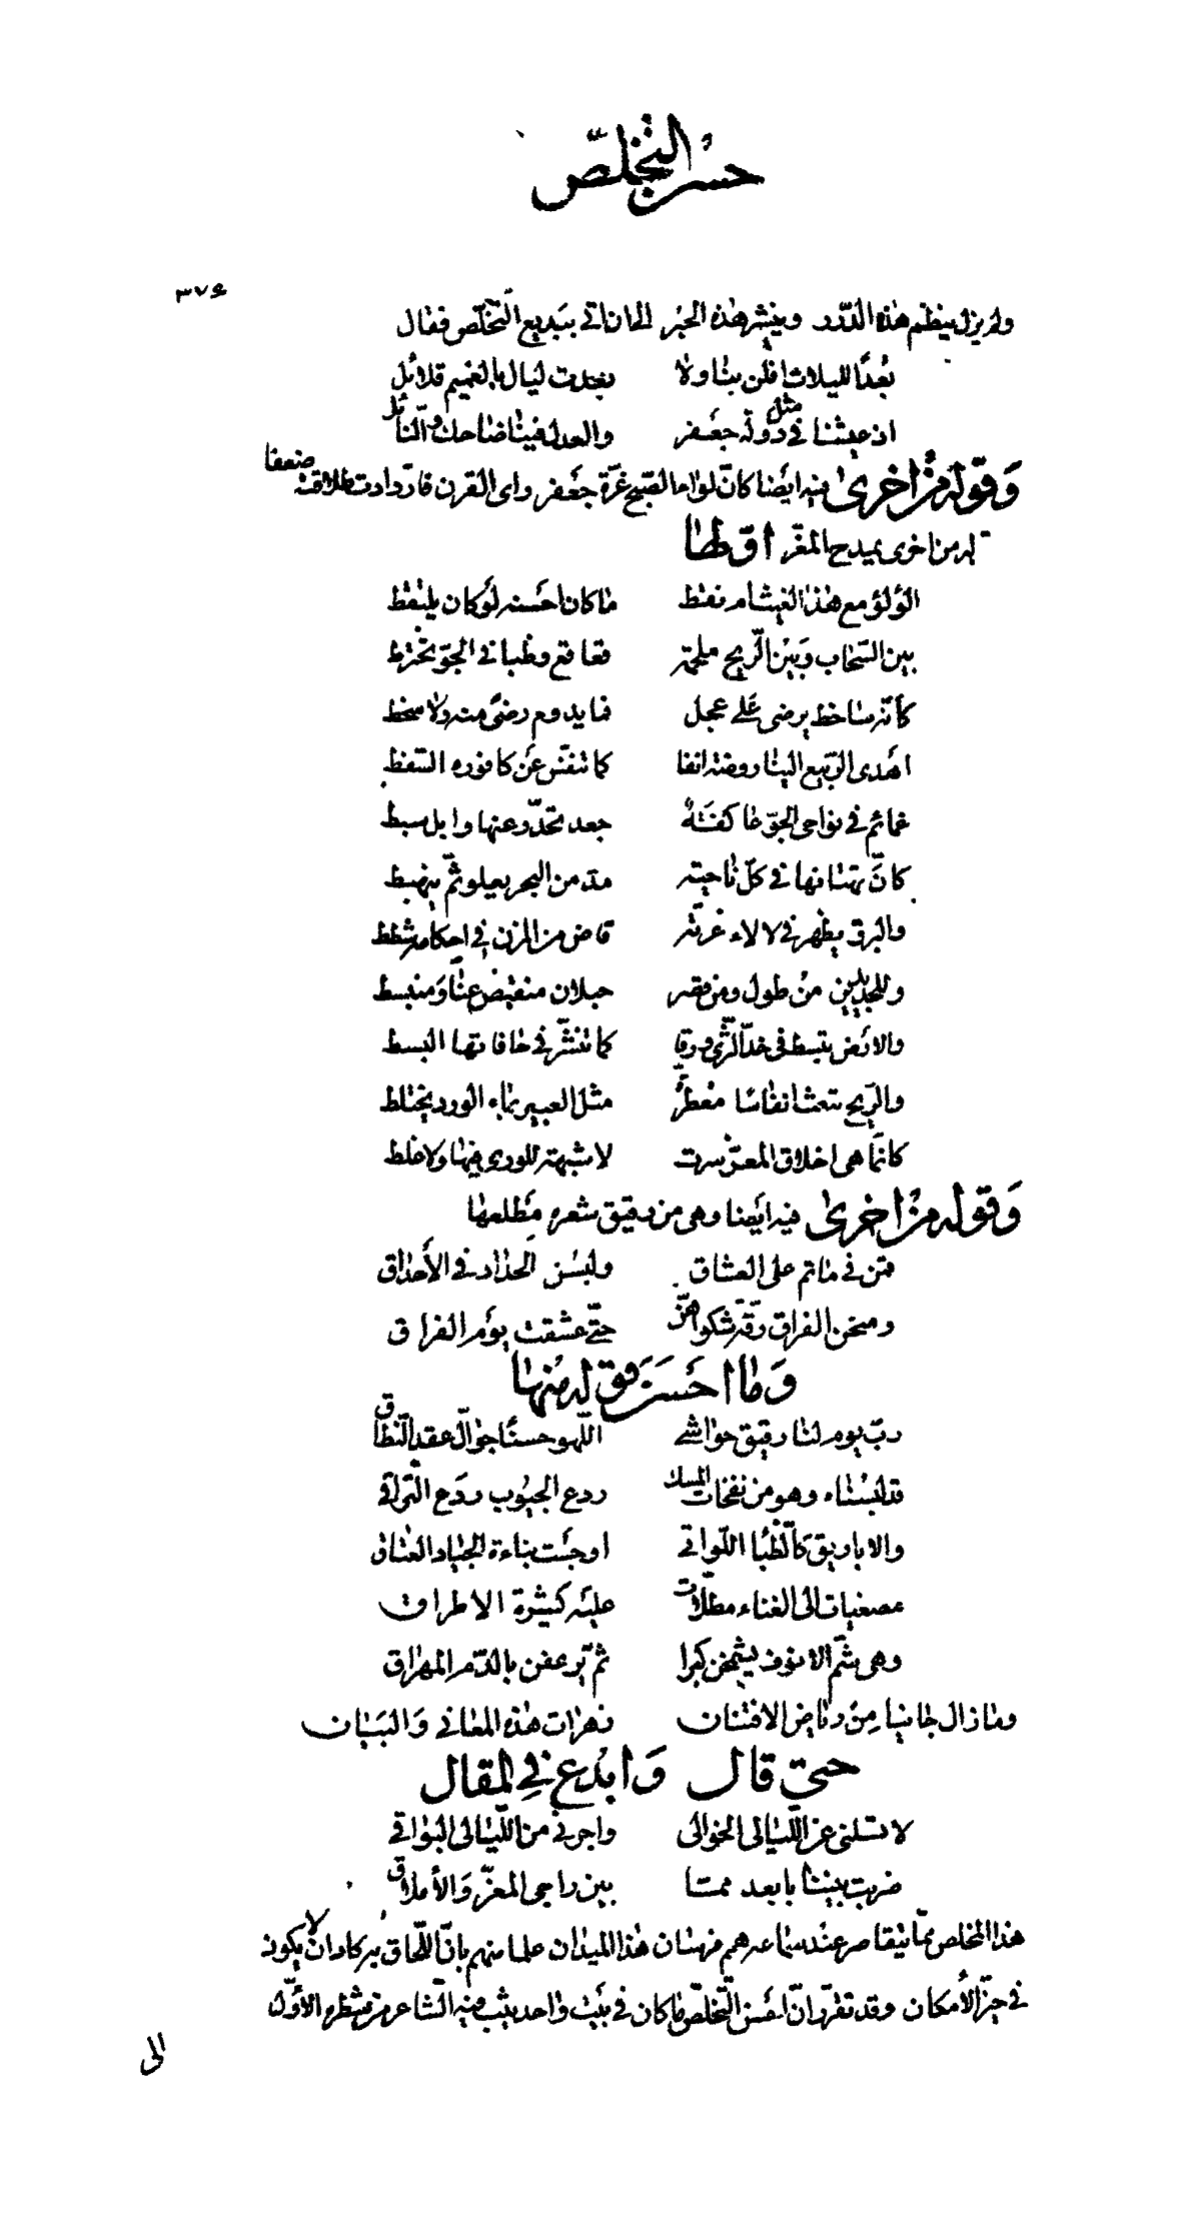 حسن التخلّص
٣٧٤
ولم يزل ينظم هذه الدّرر وينشر هذه الحبر الى ان اتى ببديع التّخلّص فقال
بُعدًا لليلات افلن بنا ولا بعدت ليال بالغميم قلائل
اذ عيشنا فى مثل دولة جعفر والعدل فينا ضاحك والنّائل
وَقوله من اخرىٰ فيه ايضا كانّ لواء الصّبح غرّة جعفر راى القرن فازدادت طلاقته ضعفا
له من اخرى يمدح المعزّ اوّلها
الؤلؤ دمع هذا الغيث ام نقط ما كان احسنه لو كان يلتقط
بين السّحاب وبين الرّيح ملحمة قعاقع وظبا فى الجوّ تخترط
كأنّه ساخط يرضى على عجل فما يدوم رضىً منه ولا سخط
اهدى الرّبيع الينا روضة انفا كما تنفّس عن كافوره السّفط
غمائم فى نواحى الجوّ عاكفةٌ جعد تحدّر عنها وابل سبط
كانّ تهتانها فى كلّ ناحية مدّ من البحر يعلو ثمّ ينهبط
والبرق يظهر فى لالاء غرّته قاض من المزن فى احكامه شطط
وللجديدين من طول ومن قصر حبلان منقبض عنّا ومنبسط
والارض تبسط فى خدّ الثّرى ورقا كما تنشّر فى حافاتها البسط
والرّيح تبعث انفاسًا معطّرةً مثل العبير بماء الورد يختلط
كانّما هى اخلاق المعزّ سرت لا شبهة للورى فيها ولا غلط
وَقوله من اخرىٰ فيه ايضا وهى من رقيق شعره مطلعها
قمن فى ماتم على العشاق ولبسن الحداد فى الأحداق
ومنحن الفراق رقّة شكواهنّ حتّى عشقت يوم الفراق
وَما احسَنَ قوله منها
ربّ يوم لنا رقيق حواشى اللّهو حسنًا جوّال عقد النّطاق
قد لبسناه وهو من نفحات المسك ردع الجيوب ردع التّراقى
والاباريق كالظّبا اللّواتى اوجست نباءة الجياد العتاق
مصغيات الى الغناء مطلّات عليه كثيرة الاطراق
وهى شمّ الانوف يشمخن كبرا ثمّ يرعفن بالدّم المهراق
وما زال جانيا من رياض الافتنان زهرات هذه المعانى والبيان
حتى قال وَابدع فى المقال
لا تسلنى عن اللّيالى الخوالى واجرنى من اللّيالى البواقى
ضربت بيننا بابعد ممّا بين راجى المعزّ والأملاق
هذا المخلص ممّا يتقاصر عند سماعه همم فرسان هذا الميدان علما منهم بانّ اللّحاق به كاد ان لا يكون
فى حيّز الأمكان وقد تقرّر انّ احسن التّخلّص ما كان فى بيت واحد يثب فيه الشّاعر من شطره الأوّل
الى